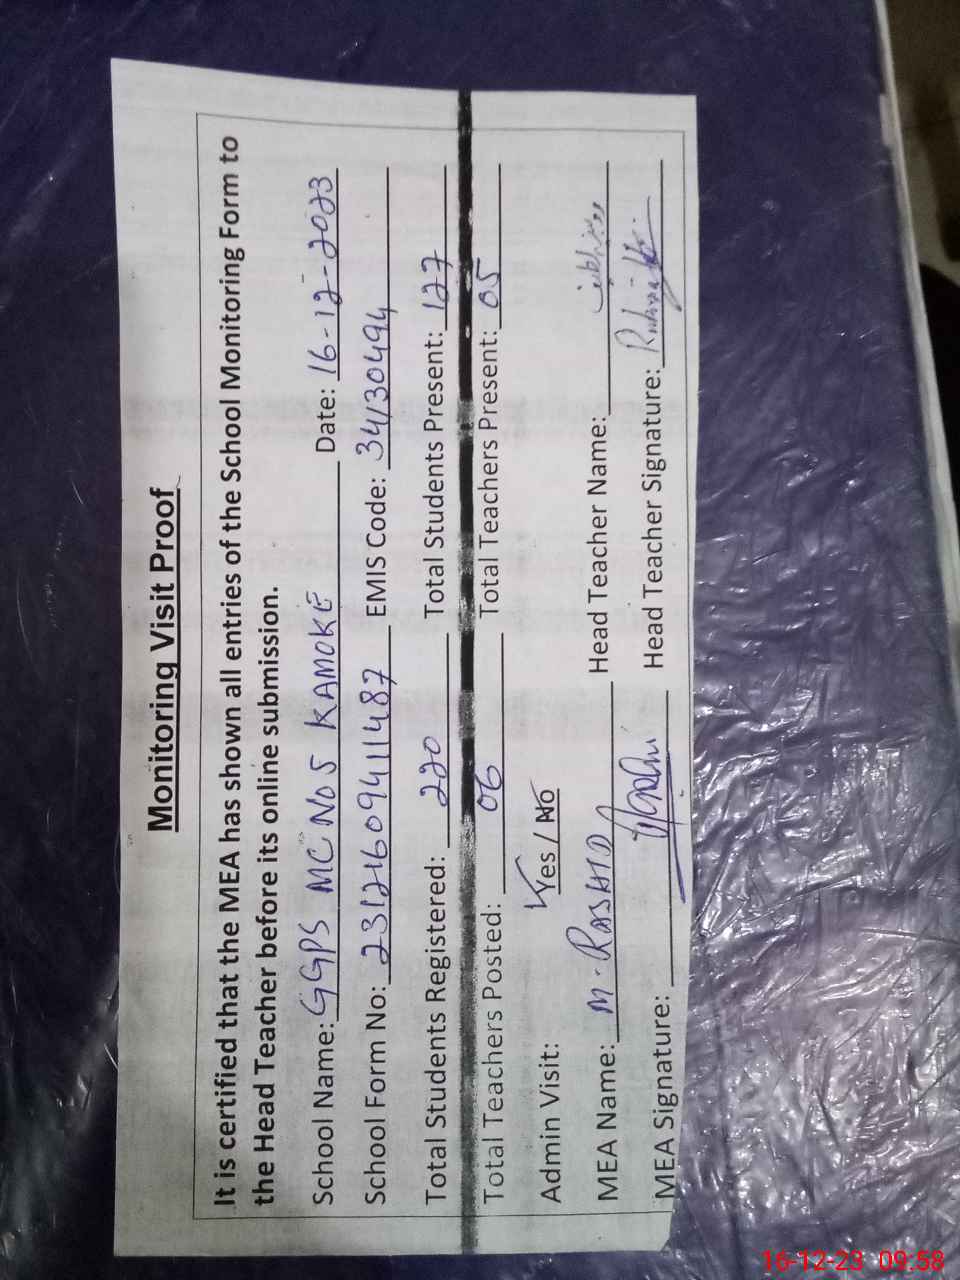 Monitoring Visit Proof
It is certified that the MEA has shown all entries of the School Monitoring Form to
the Head Teacher before its online submission.
School Name: GGPS MC No 5 KAMOKE Date: 16-12-2023
School Form No: 23121609411487 EMIS Code: 34130494
Total Students Registered: 220 Total Students Present: 127
Total Teachers Posted: 06 Total Teachers Present: 05
Admin Visit: Yes / No
MEA Name: M. RASHID Head Teacher Name:
MEA Signature: Head Teacher Signature:
16-12-23 09:58